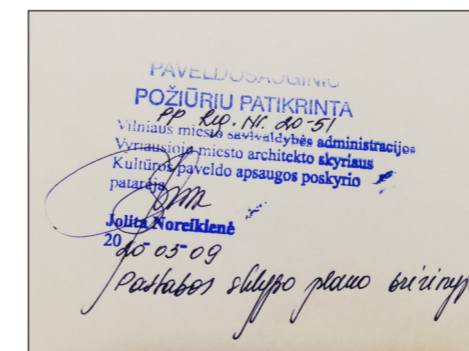 PAVELDOSAUGINIU
POŽIŪRIU PATIKRINTA
PP Reg. Nr. 20-51
Vilniaus miesto savivaldybės administracijos
Vyriausiojo miesto architekto skyriaus
Kultūros paveldo apsaugos poskyrio
patarėja
Jolita Noreikienė
2020-03-09
Pastabos sklypo plano